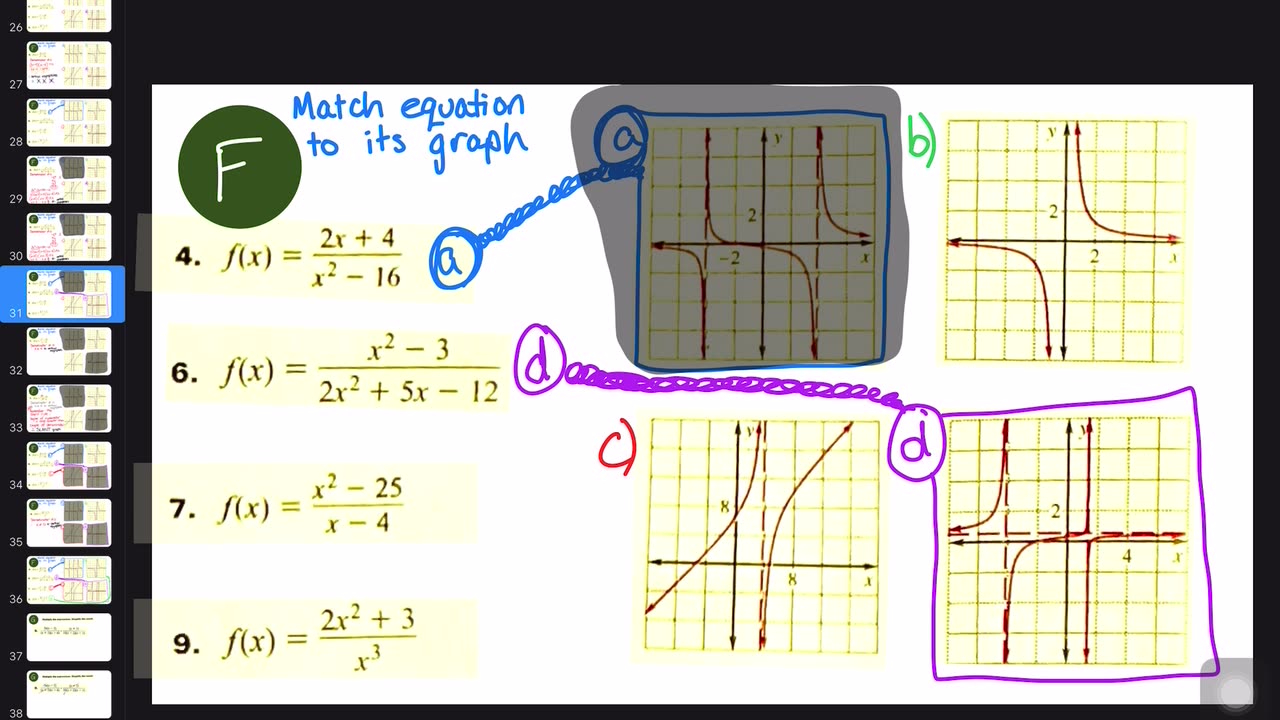 26
27
28
29
30
31
32
33
34
35
36
37
38
F
Match equation
to its graph
4. f(x) = \frac{2x + 4}{x^2 - 16}
a
6. f(x) = \frac{x^2 - 3}{2x^2 + 5x - 12}
d
7. f(x) = \frac{x^2 - 25}{x - 4}
9. f(x) = \frac{2x^2 + 3}{x^3}
a
y
2
-2
x
b)
y
2
2
x
c)
y
8
8
x
d
y
2
4
x